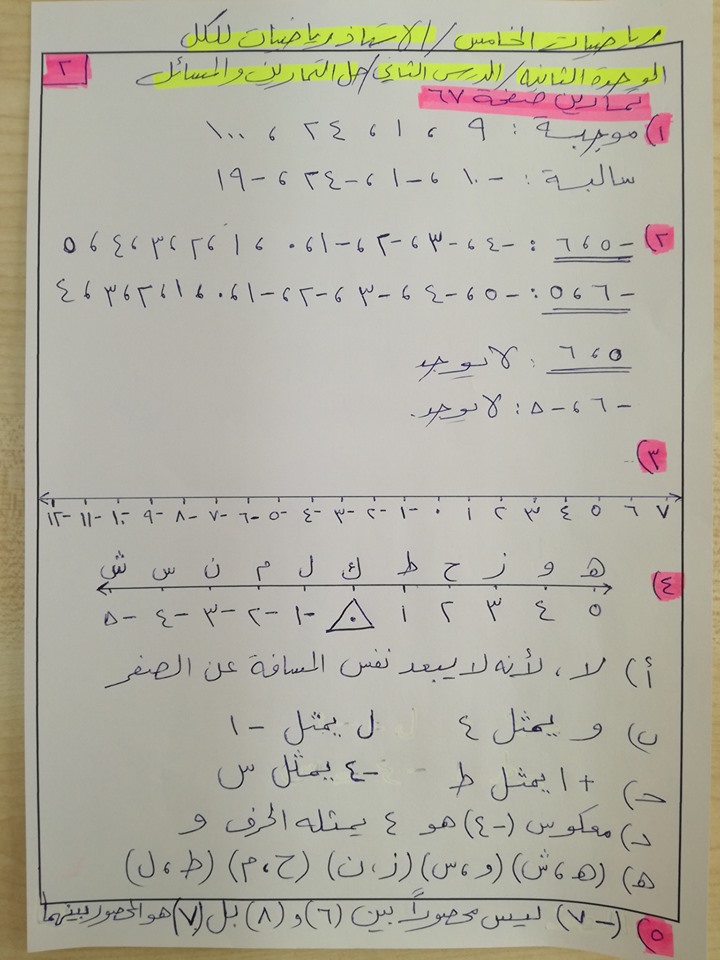 رياضيات الخامس / الاستاذ رياضيات للكل
الوحدة الثانية / الدرس الثاني / حل التمارين والمسائل
٢
تمارين صفحة ٦٧
١) موجبة : ٩ ، ١ ، ٢٤ ، ١٠٠
سالبة : -١٠ ، -١ ، -٢٤ ، -١٩
٢) -٥ ، ٦ : -٤ ، -٣ ، -٢ ، -١ ، ٠ ، ١ ، ٢ ، ٣ ، ٤ ، ٥
-٦ ، ٥ : -٥ ، -٤ ، -٣ ، -٢ ، -١ ، ٠ ، ١ ، ٢ ، ٣ ، ٤
٥ ، ٦ : لا يوجد
-٦ ، -٥ : لا يوجد.
٣)
٧ ٦ ٥ ٤ ٣ ٢ ١ ٠ -١ -٢ -٣ -٤ -٥ -٦ -٧ -٨ -٩ -١٠ -١١ -١٢
٤) هـ و ز ح ط ك ل م ن س ش
٥ ٤ ٣ ٢ ١ ٠ -١ -٢ -٣ -٤ -٥
أ) لا ، لأنه لا يبعد نفس المسافة عن الصفر
ب) و يمثل ٤ ل يمثل -١
حـ) +١ يمثل ط -٤ يمثل س
د) معكوس (-٤) هو ٤ يمثله الحرف و
هـ) (هـ ، ش) (و ، س) (ز ، ن) (ح ، م) (ط ، ل)
٥) (-٧) ليس محصوراً بين (٦) و (٨) بل (٧) هو المحصور بينهما